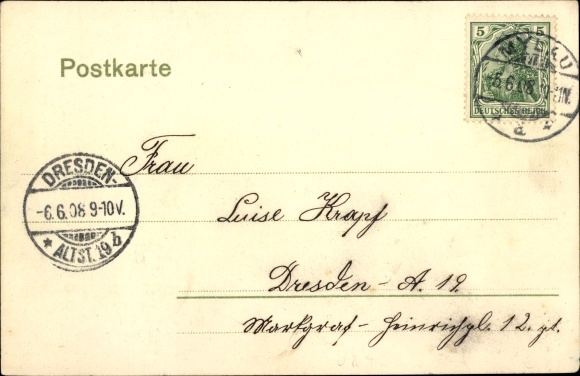 Postkarte
5 5
DEUTSCHES REICH
MYLAU
5.6.08
d
DRESDEN-
-6.6.08 9-10V.
* ALTST. 19 b
Frau
Luise Krapf
Dresden - A. 19.
Markgraf - Heinrichpl. 12. pt.